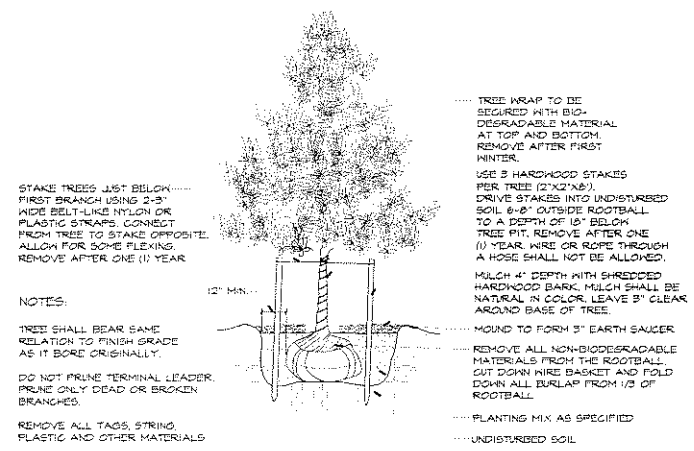 STAKE TREES JUST BELOW
FIRST BRANCH USING 2-3"
WIDE BELT-LIKE NYLON OR
PLASTIC STRAPS. CONNECT
FROM TREE TO STAKE OPPOSITE.
ALLOW FOR SOME FLEXING.
REMOVE AFTER ONE (1) YEAR
NOTES:
TREE SHALL BEAR SAME
RELATION TO FINISH GRADE
AS IT BORE ORIGINALLY.
DO NOT PRUNE TERMINAL LEADER.
PRUNE ONLY DEAD OR BROKEN
BRANCHES.
REMOVE ALL TAGS, STRING,
PLASTIC AND OTHER MATERIALS
12" MIN.
TREE WRAP TO BE
SECURED WITH BIO-
DEGRADABLE MATERIAL
AT TOP AND BOTTOM.
REMOVE AFTER FIRST
WINTER.
USE 3 HARDWOOD STAKES
PER TREE (2"X2"X8').
DRIVE STAKES INTO UNDISTURBED
SOIL 6-8" OUTSIDE ROOTBALL
TO A DEPTH OF 18" BELOW
TREE PIT. REMOVE AFTER ONE
(1) YEAR. WIRE OR ROPE THROUGH
A HOSE SHALL NOT BE ALLOWED.
MULCH 4" DEPTH WITH SHREDDED
HARDWOOD BARK. MULCH SHALL BE
NATURAL IN COLOR. LEAVE 3" CLEAR
AROUND BASE OF TREE.
MOUND TO FORM 3" EARTH SAUCER
REMOVE ALL NON-BIODEGRADABLE
MATERIALS FROM THE ROOTBALL.
CUT DOWN WIRE BASKET AND FOLD
DOWN ALL BURLAP FROM 1/3 OF
ROOTBALL
PLANTING MIX AS SPECIFIED
UNDISTURBED SOIL